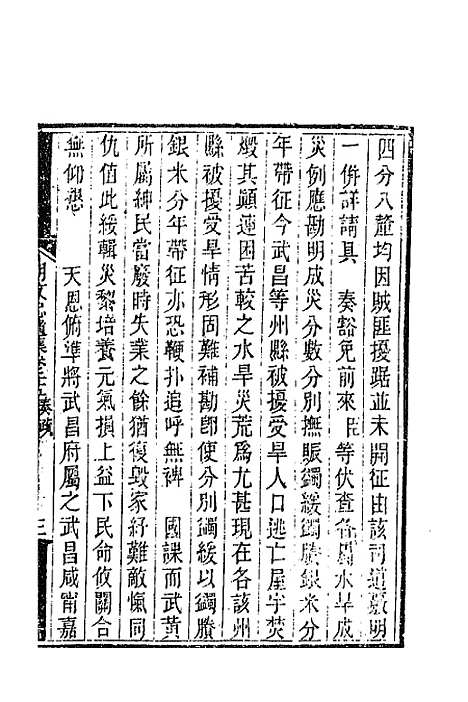 四分八釐均因賊匪擾踞並未開征由該司道覈明
一併詳請具　奏豁免前來臣等伏查各屬水旱成
災例應勘明成災分數分別撫賑蠲緩蠲賸銀米分
年帶征今武昌等州縣被擾受旱人口逃亡屋宇焚
燬其顛連困苦較之水旱災荒爲尤甚現在各該州
縣被擾受旱情形固難補勘卽使分別蠲緩以蠲賸
銀米分年帶征亦恐鞭扑追呼無裨　國課而武黃
所屬紳民當廢時失業之餘猶復毀家紓難敵愾同
仇值此綏輯災黎培養元氣損上益下民命攸關合
無仰懇　天恩俯準將武昌府屬之武昌咸甯嘉